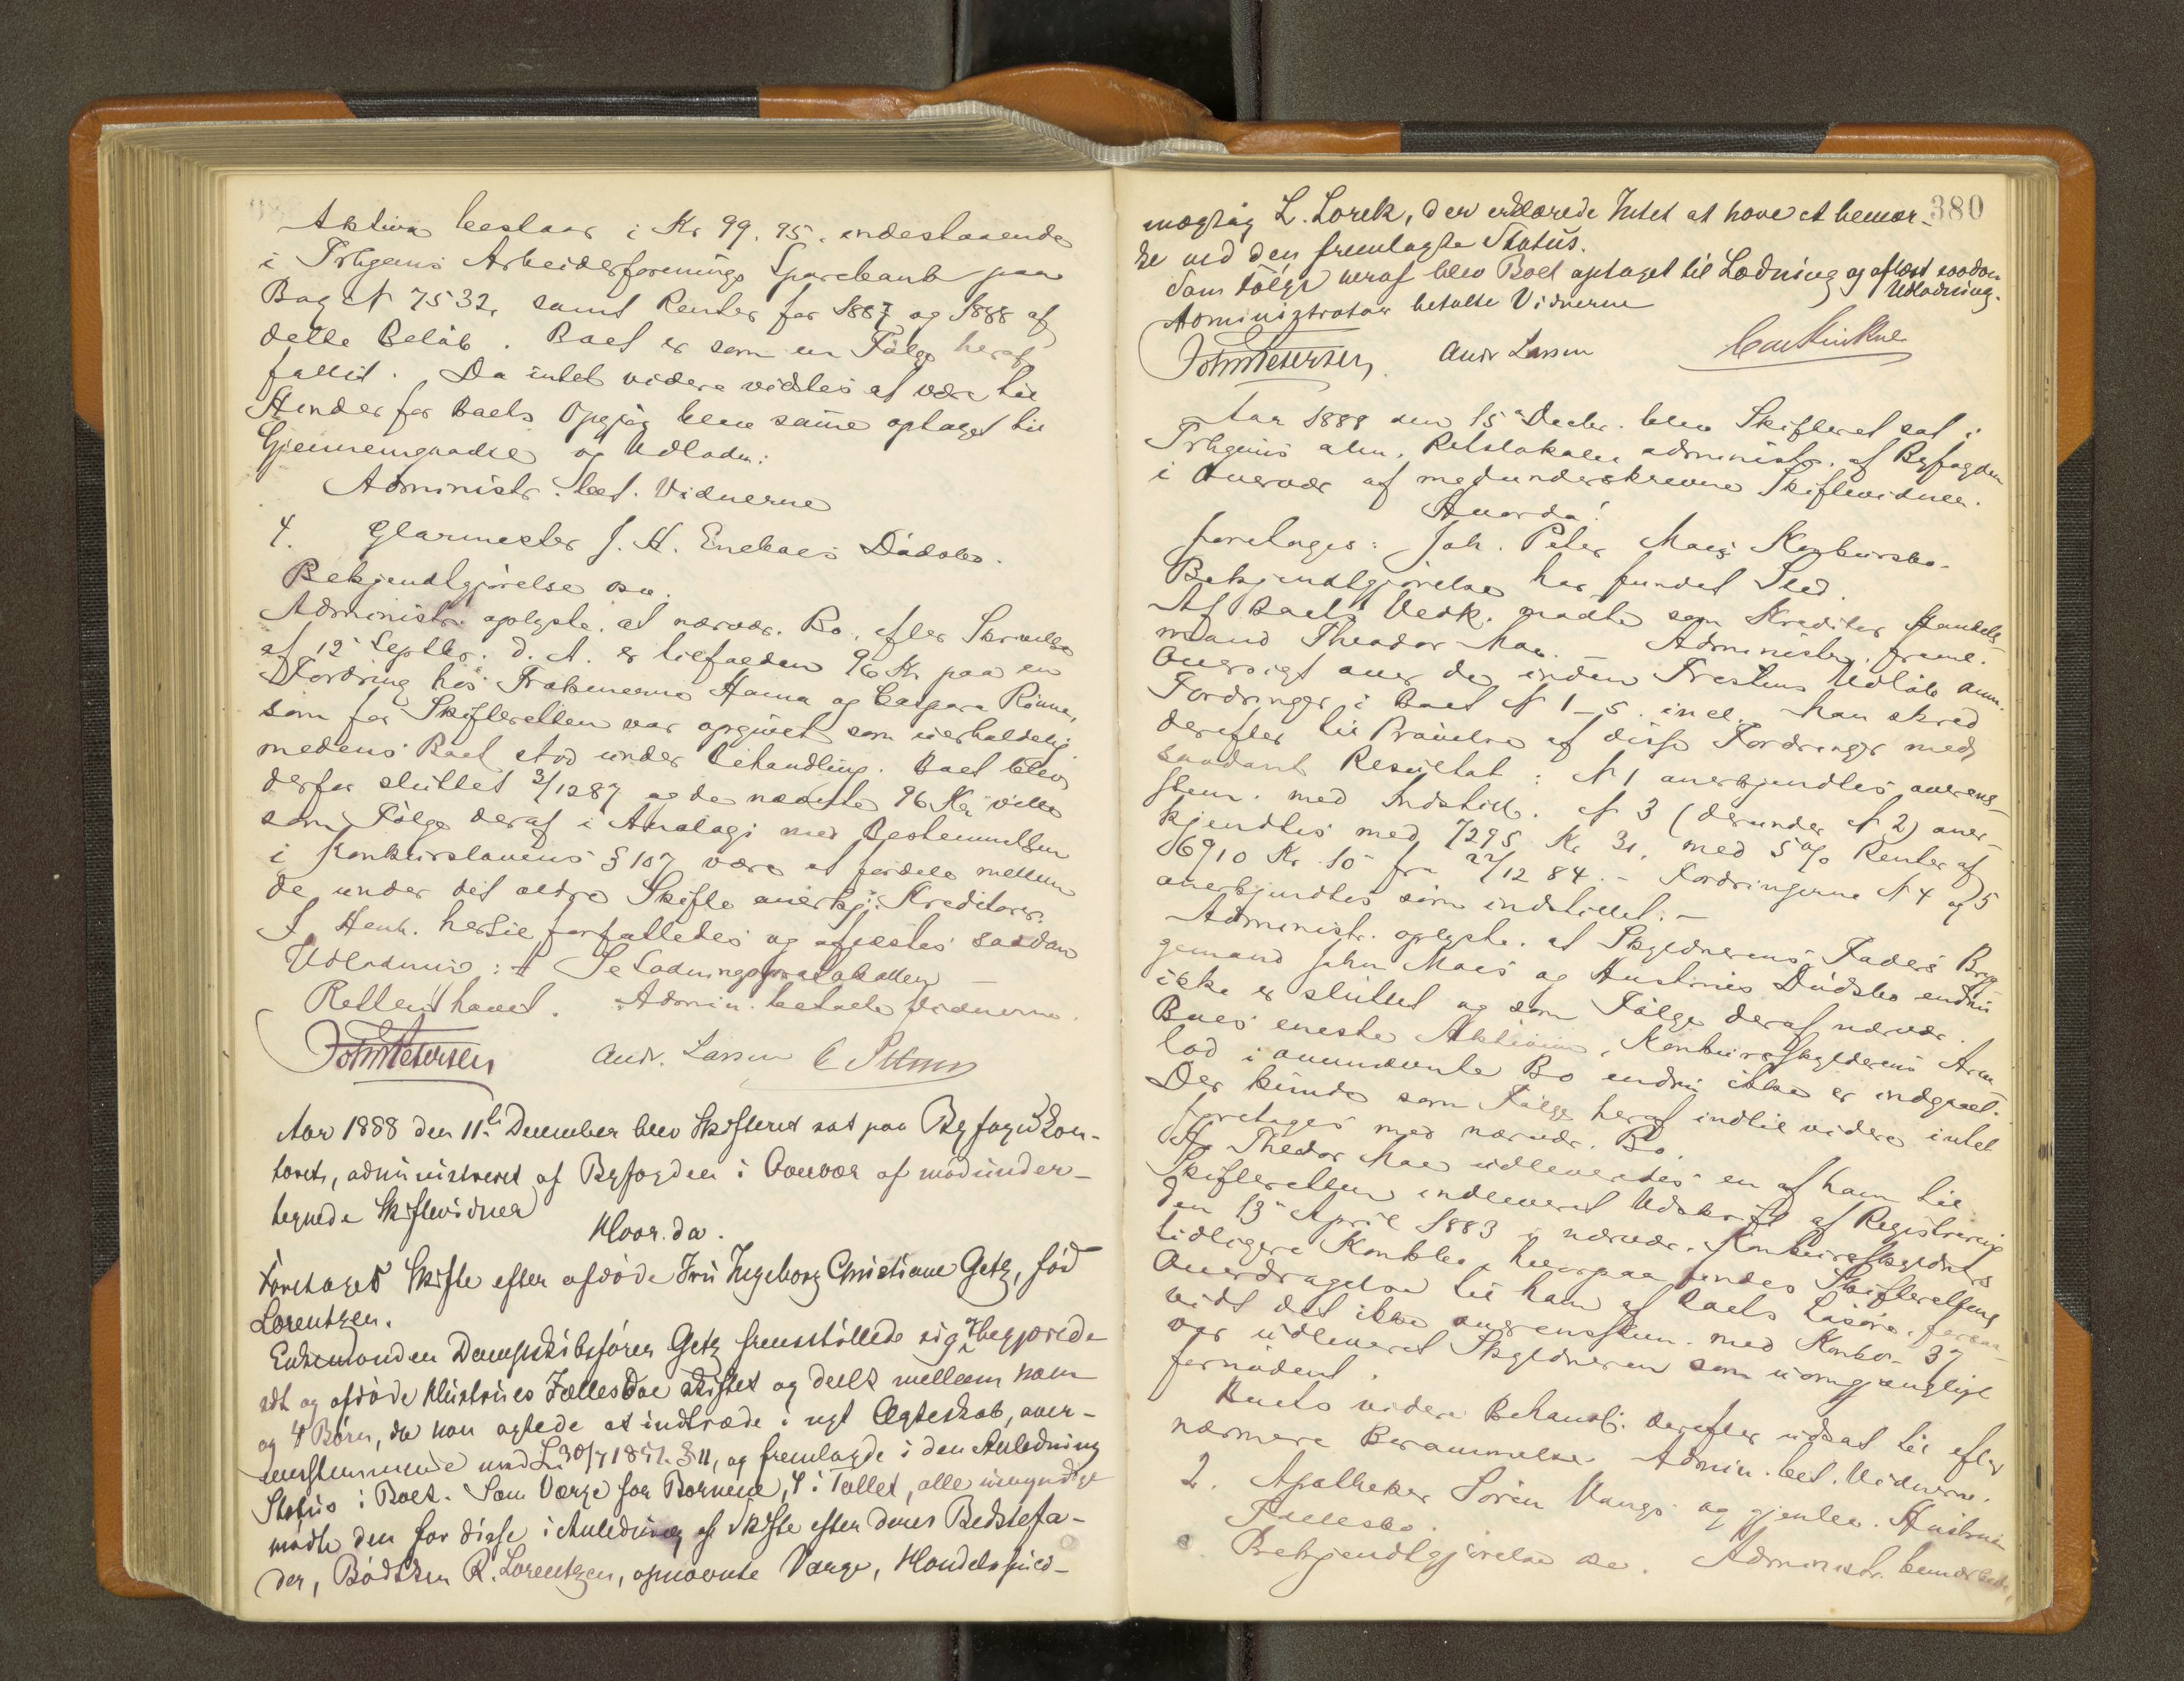 Aktiva bestaar i Kr 99.95. indestaaende
i Trhgens Arbeiderforenings Sparebank paa
Bog № 7532, samt Renter for 1887 og 1888 af
dette Beløb. Boet er som en Følge heraf
fallit. Da intet videre vidtes at være til
Hinder for Boets Opgjør blev samme optaget til
Gjennemgaaelse og Udlodn:
Administr. bet. Vidnerne
4. Glarmester J. H. Enebaes Dødsbo.
Bekjendtgjørelse
Administr. oplyste, at nærvær. Bo, efter Skrivelse
af 12 Septbr. d. A. er tilfalden 96 Kr paa en
Fordring hos Frøknerne Hanna og Caspara Rönne,
som for Skifteretten var opgivet som uerholdelig
medens Boet stod under Behandling. Boet blev
derfor sluttet 3/12 87 og de nævnte 96 Kr ville
som Følge deraf i Analogi med Bestemmelsen
i Konkurslovens § 107 være at fordele mellem
de under det ældre Skifte anerkj. Kreditorer.
I Henh. hertil forfattedes og afsiges saadan
Udlodning: Se Lodningsprotokollen
Retten hævet. Admin. betalte Vidnerne.
John Petersen Andr. Larsen
Aar 1888 den 11te December blev Skifteret sat paa Byfogedkon-
toret, administreret af Byfogden i Overvær af medunder-
tegnede Skiftevidner
Hvor. da.
foretages Skifte efter afdøde Fru Ingeborg Christiane Getz, fød
Lorentzen.
Enkemanden Dampskibsfører Getz fremstillede sig & begjærede
sit og afdøde Hustrues Fællesboe skiftet og deelt mellem ham
og 4 Børn, da han agtede at indtræde i nyt Ægteskab, over-
ensstemmende med L. 30/7 1851 § 11, og fremlagde i den Anledning
Status i Boet. Som Værge for Børnene, 4 i Tallet, alle umyndige
mødte den for disse i Anledning af Skifte efter deres Bedstefa-
der, Bødker R. Lorentzen, opnævnte Værge, Handelsfuld-
380
mægtig L. Lorck, der erklærede Intet at have at bemær-
ke ved den fremlagte Status.
Som Følge heraf blev Boet optaget til Lodning og aflæst saadan
Udlodning.
Administrator betalte Vidnerne
John Petersen. Andr Larsen
Aar 1888 den 15de Decbr. blev Skifteret sat i
Trhgens alm. Retslokale administr. af Byfogden
i Overvær af medunderskrevne Skiftevidner.
Hvorda!
foretages: Joh. Peter Moes Konkursbo.
Bekjendtgjørelse har fundet Sted.
Af Boets Vedk. mødte som Kreditor Handels-
mand Theodor Moe. Administr. freml.
Oversigt over de inden Fristens Udløb anm.
Fordringer i Boet № 1–5 incl. Man skred
derefter til Prøvelse af disse Fordringer med
saadant Resultat: № 1 anerkjendtes overens-
stem. med Indstill. № 3 (derunder № 2) aner-
kjendtes med 7295 Kr 31, med 5 % Renter af
6910 Kr 10 fra 22/12 84. – Fordringerne № 4 og 5
anerkjendtes som indstillet. –
Administr. oplyste, at Skyldnerens Faders Bryg-
gemand John Moes og Hustrues Dødsbo endnu
ikke er sluttet og som Følge deraf nærvær.
Boes eneste Aktivum, Konkursskyldnerens Arve-
lod i omnævnte Bo endnu ikke er indgaaet.
Der kunde som Følge heraf indtil videre intet
foretages med nærvær. Bo.
Hr Theodor Moe udleveredes en af ham til
Skifteretten indleveret Udskrift af Registrering
den 13de April 1883 i nærvær. Konkursskyldners
tidligere Konkbo, hvorpaa findes Skifterettens
Overdragelse til ham af Boets Løsøre, forsaa-
vidt det ikke overensstem. med Konkl. 37
var udleveret Skyldneren som uomgjængeligt
fornødent.
Boets videre Behandl. derefter udsat til efter
nærmere Berammelse. Admin. bet. Vidnerne.
2. Apotheker Sören Vangs og gjenlev. Hustrues
Fællesbo.
Bekjendtgjørelse Administr. bemærkede,